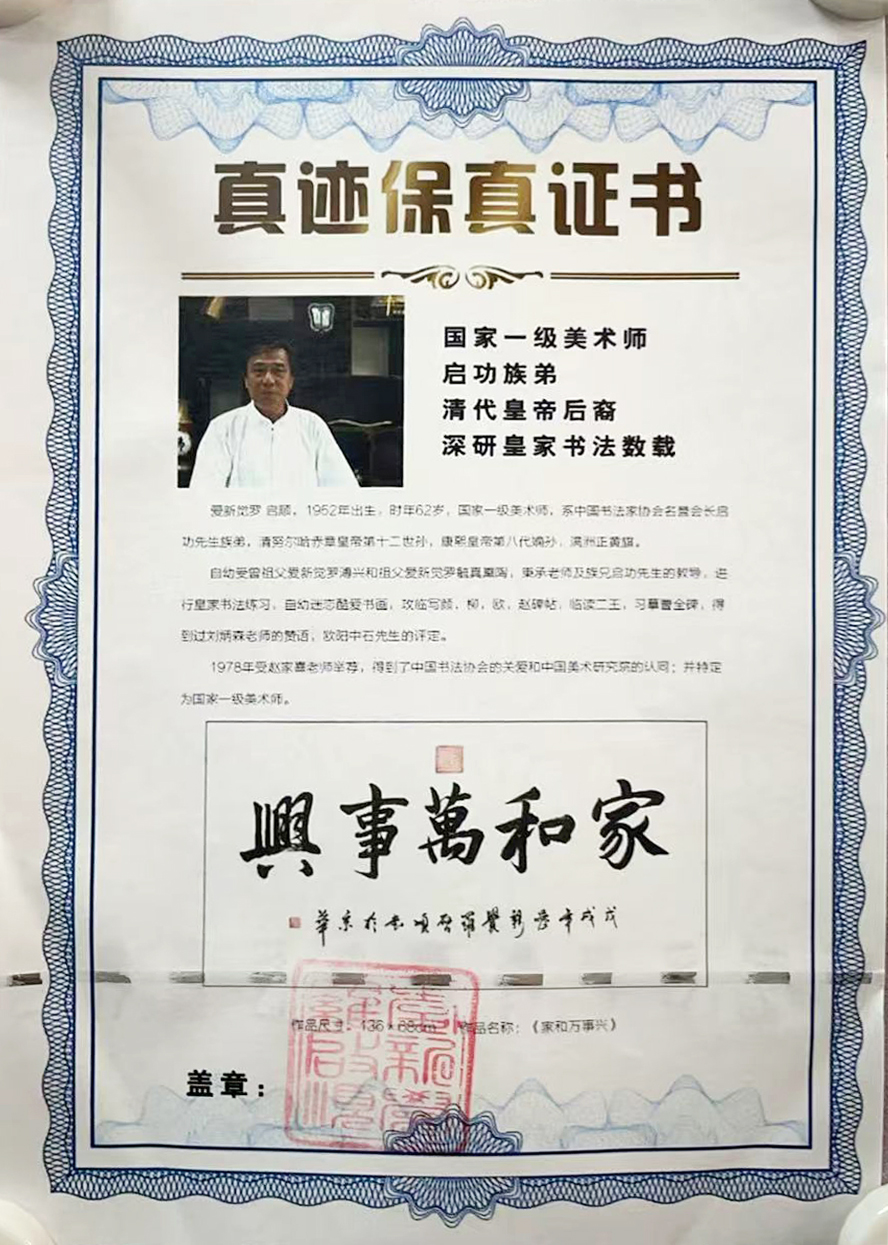 真迹保真证书
国家一级美术师
启功族弟
清代皇帝后裔
深研皇家书法数载
爱新觉罗 启顺，1952年出生，时年62岁，国家一级美术师，系中国书法家协会名誉会长启
功先生族弟，清努尔哈赤章皇帝第十二世孙，康熙皇帝第八代嫡孙，满洲正黄旗。
自幼受曾祖父爱新觉罗溥兴和祖父爱新觉罗毓真熏陶，秉承老师及族兄启功先生的教导，进
行皇家书法练习，自幼迷恋酷爱书画，攻临写颜，柳，欧，赵碑帖，临读二王，习摹曹全碑，得
到过刘炳森老师的赞语，欧阳中石先生的评定。
1978年受赵家熹老师举荐，得到了中国书法协会的关爱和中国美术研究院的认同；并特定
为国家一级美术师。
家和萬事興
戊戌年愛新覺羅啟順書於京華
作品尺寸：136×68cm 作品名称：《家和万事兴》
盖章：